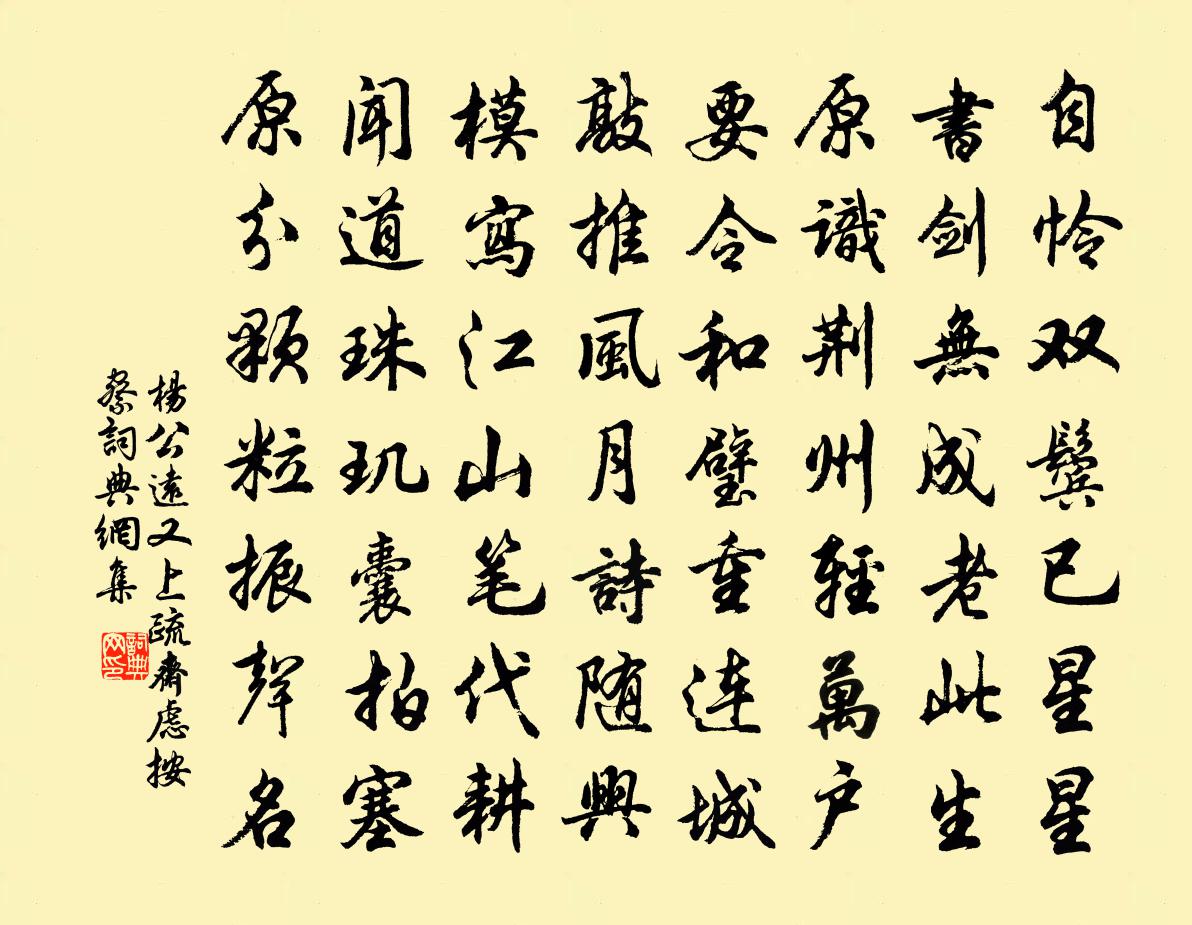 自怜双鬓已星星
書剑無成老此生
原識荆州輕萬户
要令和璧重連城
敲推風月詩随興
模寫江山笔代耕
闻道珠玑囊拍塞
原分顆粒振聲名
楊公遠又上疏齋慮按
察詞典網集
詞典网印